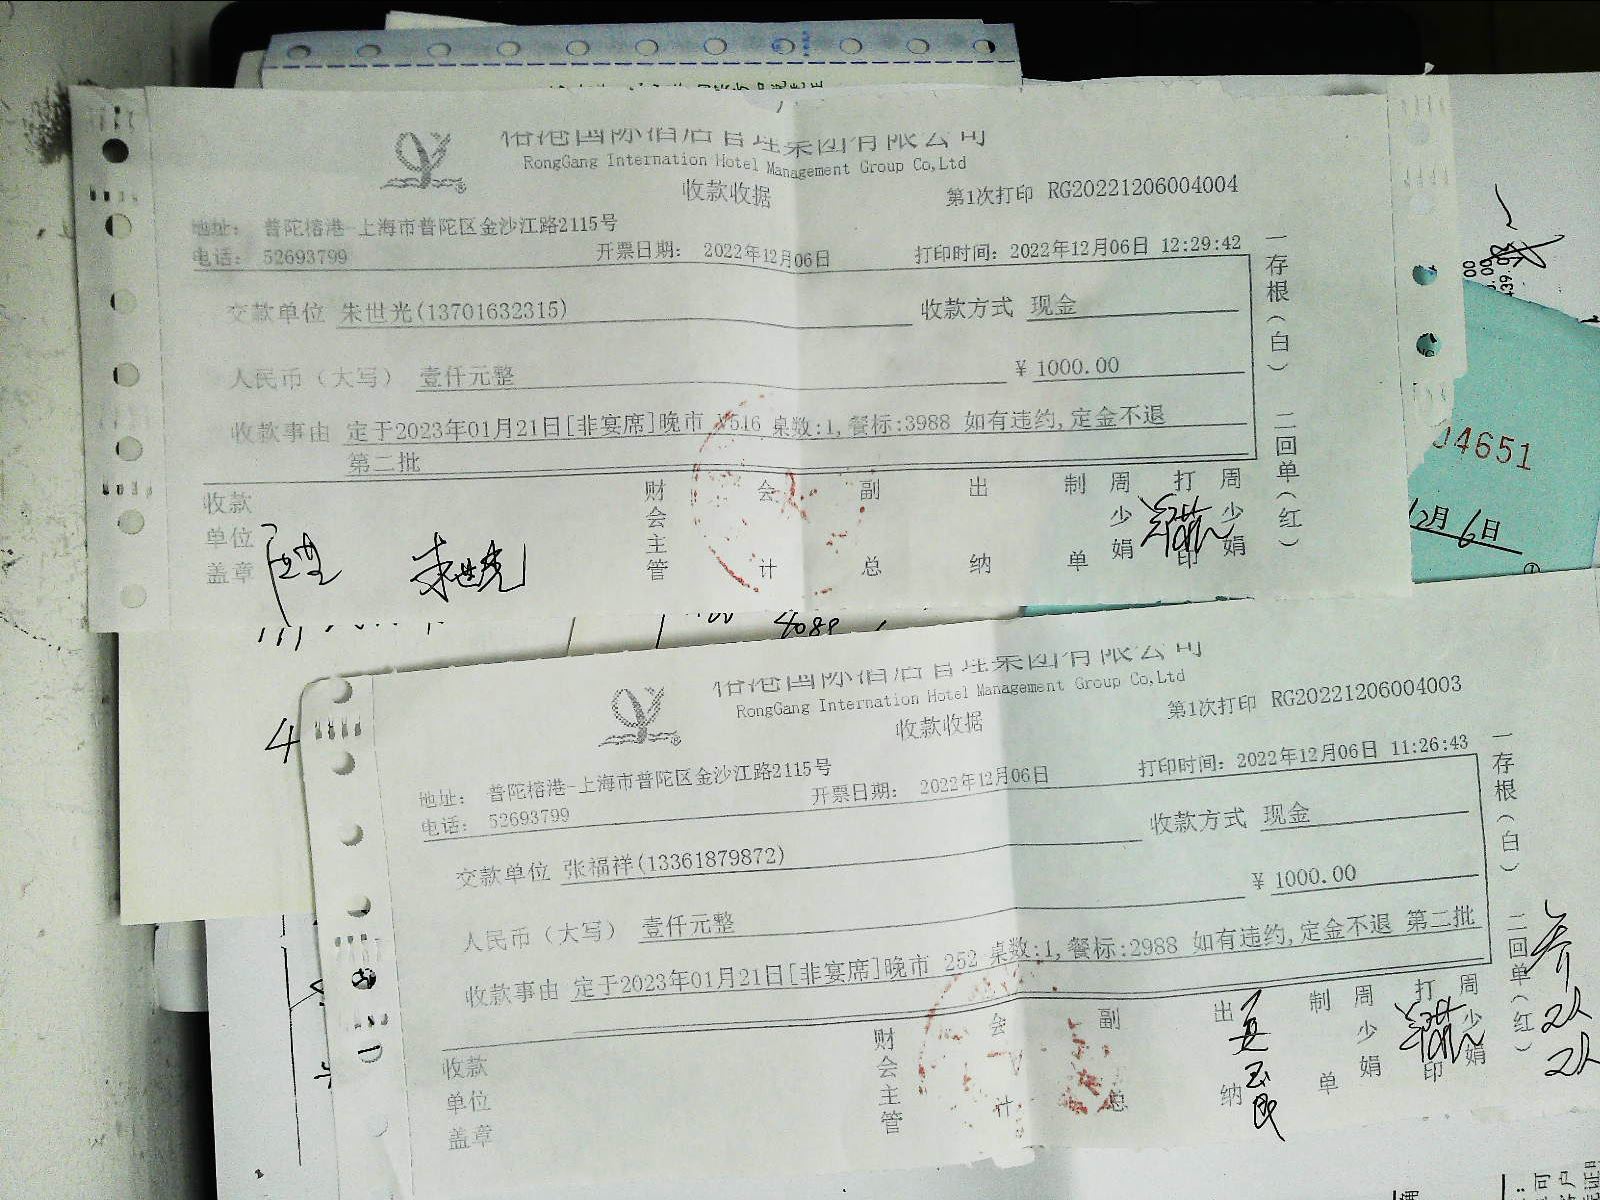 榕港国际酒店管理集团有限公司
RongGang Internation Hotel Management Group Co,Ltd
收款收据
第1次打印 RG20221206004004
地址： 普陀榕港-上海市普陀区金沙江路2115号
电话： 52693799
开票日期： 2022年12月06日
打印时间： 2022年12月06日 12:29:42
交款单位 朱世光(13701632315)
收款方式 现金
人民币（大写） 壹仟元整
¥ 1000.00
收款事由 定于2023年01月21日[非宴席]晚市 V516 桌数:1,餐标:3988 如有违约,定金不退
第二批
收款单位盖章
朱世光
财会主管
会计
副总
出纳
制单
周少娟
打印
周少娟
一存根（白）
二回单（红）
04651
12月6日
4089
4
榕港国际酒店管理集团有限公司
RongGang Internation Hotel Management Group Co,Ltd
收款收据
第1次打印 RG20221206004003
地址： 普陀榕港-上海市普陀区金沙江路2115号
电话： 52693799
开票日期： 2022年12月06日
打印时间： 2022年12月06日 11:26:43
交款单位 张福祥(13361879872)
收款方式 现金
人民币（大写） 壹仟元整
¥ 1000.00
收款事由 定于2023年01月21日[非宴席]晚市 252 桌数:1,餐标:2988 如有违约,定金不退 第二批
收款单位盖章
财会主管
会计
副总
出纳
制单
周少娟
打印
周少娟
一存根（白）
二回单（红）